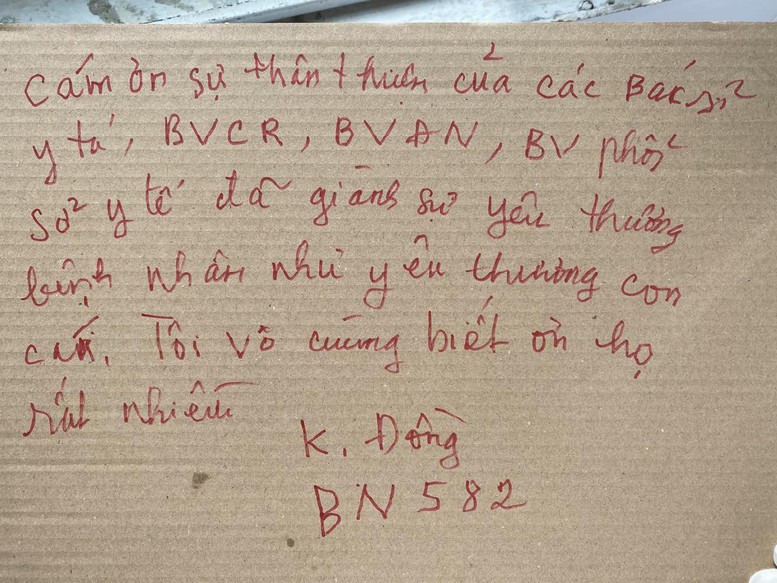 Cám ơn sự thân thiện của các Bác sĩ
y tá, BVCR, BVAN, BV phổi
Sở y tế đã giành sự yêu thương
bệnh nhân như yêu thương con
cái. Tôi vô cùng biết ơn họ
rất nhiều
K. Đồng
BN 582